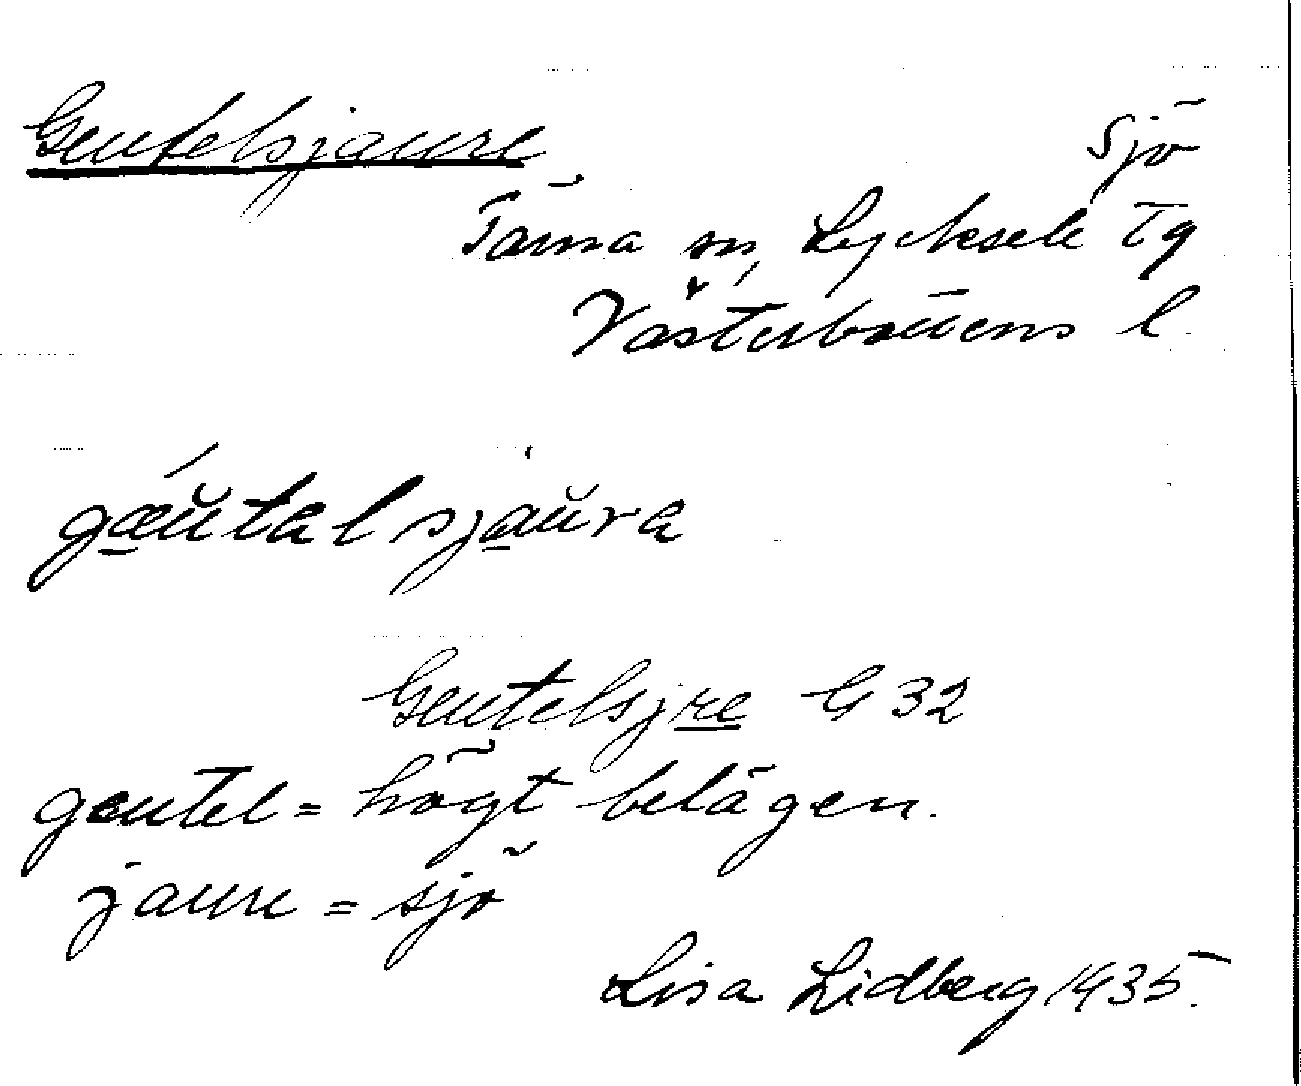 Geutelsjaure
Sjö
Tärna sn, Lycksele tg
Västerbottens l.
gǽŭtalsjaŭra
Geutelsjre G 32
geutel = högt belägen.
jaure = sjö
Lisa Lidberg 1935.